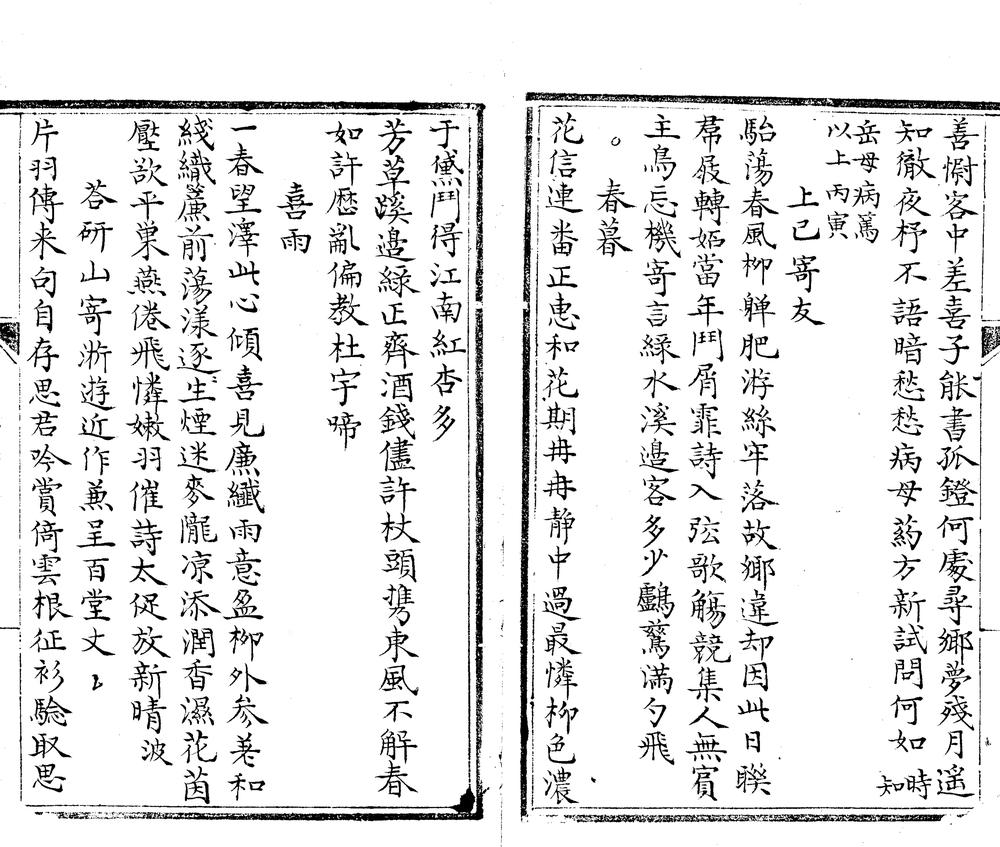 善慰客中差喜子能書孤鐙何處尋鄉夢殘月遥
知徹夜杼不語暗愁愁病母葯方新試問何如時知
岳母病篤
以上丙寅
上巳寄友
駘蕩春風柳亸肥游絲牢落故鄉違却因此日聯
屐轉姬當年鬥屑霏詩入弦歌觴競集人無賓
主鳥忘機寄言綠水溪邉客多少鸕鶿滿勺飛
春暮
花信連畨正惠和花期冉冉静中過最憐柳色濃
于黛鬥得江南紅杏多
芳草蹊邉綠正齊酒錢儘許杖頭携東風不解春
如許歴亂偏教杜宇啼
喜雨
一春望澤此心傾喜見廉纖雨意盈柳外参差和
綫織簾前蕩漾逐生煙迷麥隴凉添潤香濕花茵
壓欲平巢燕倦飛憐嫩羽催詩太促放新晴波
荅研山寄浙遊近作兼呈百堂丈
片羽傳来句自存思君吟賞倚雲根征衫騐取思